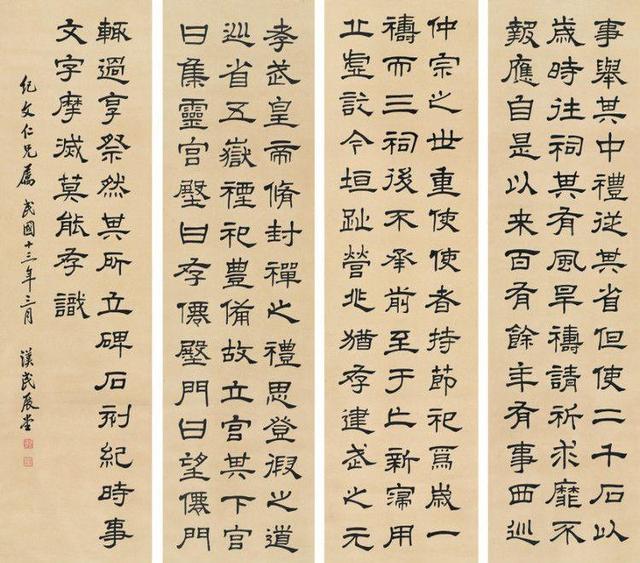 事舉其中禮從其省但使二千石以
歲時往祠其有風旱禱請祈求靡不
報應自是以来百有餘年有事西巡
仲宗之世重使使者持節祀爲歲一
禱而三祠後不承前至于亡新寖用
丘虛訖今垣趾營兆猶存建武之元
孝武皇帝脩封禪之禮思登徦之道
巡省五嶽禋祀豐備故立宮其下宮
曰集靈宮壂曰存僊壂門曰望僊門
輒過享祭然其所立碑石刻紀時事
文字摩滅莫能存識
紀文仁兄屬 民國十三年三月 漢民展堂